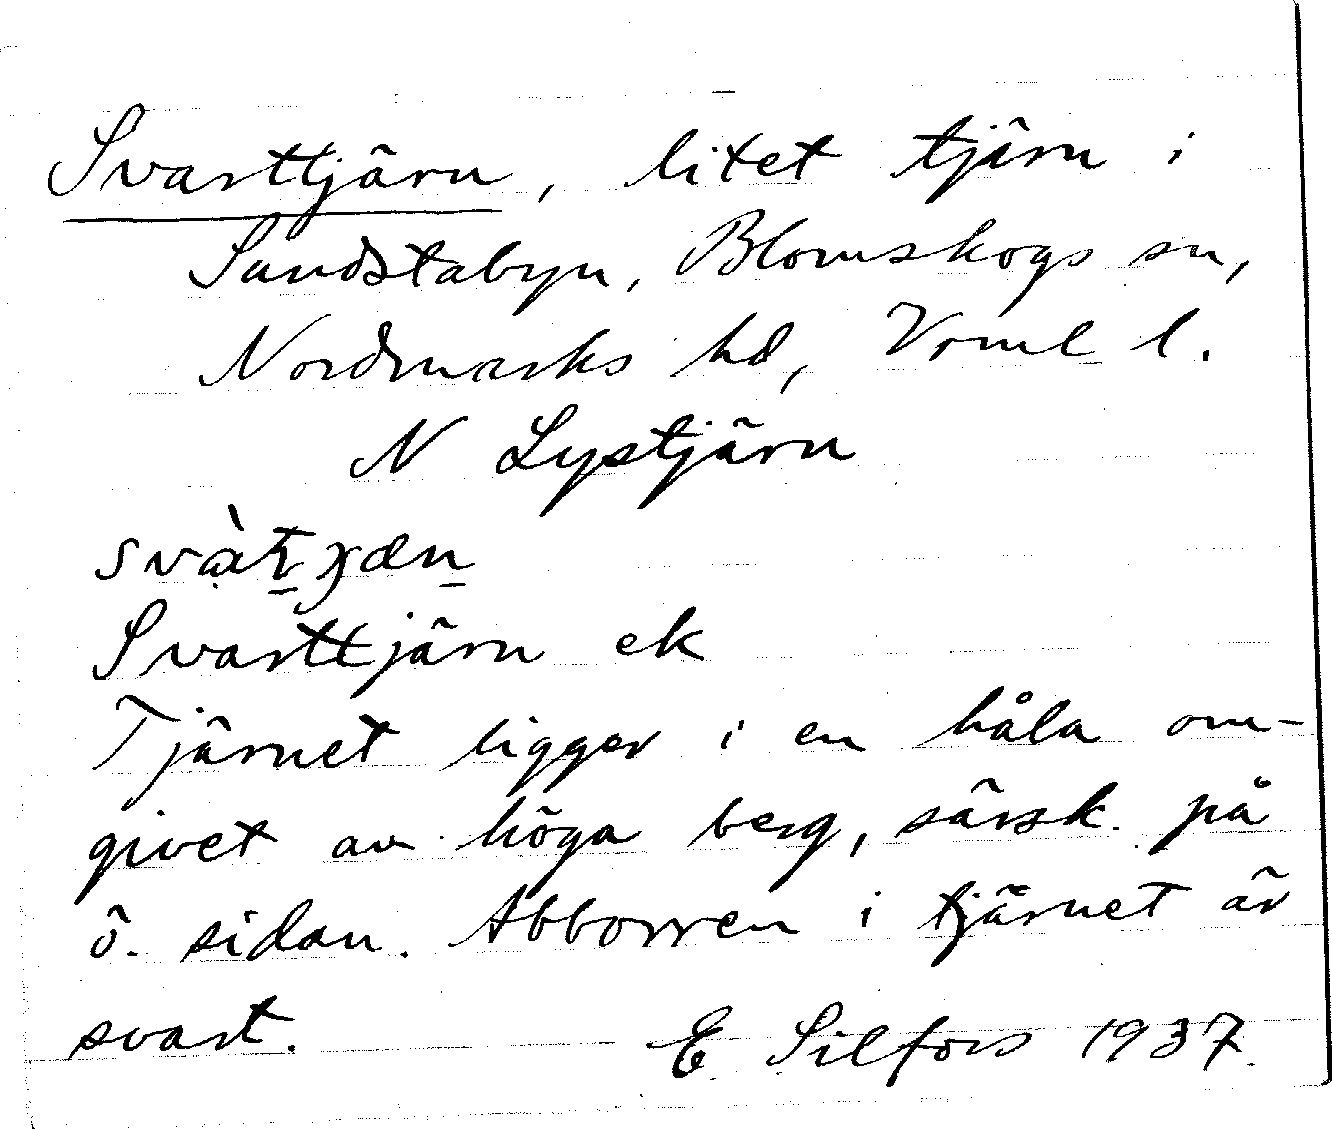 Svarttjärn, litet tjärn i
Sandstabyn, Blomskogs sn,
Nordmarks hd, Vrml l.
N Lystjärn
Svarttjärn ek
Tjärnet ligger i en håla om-
givet av höga berg, särsk. på
ö. sidan. Abborren i tjärnet är
svart.
E Silfors 1937.